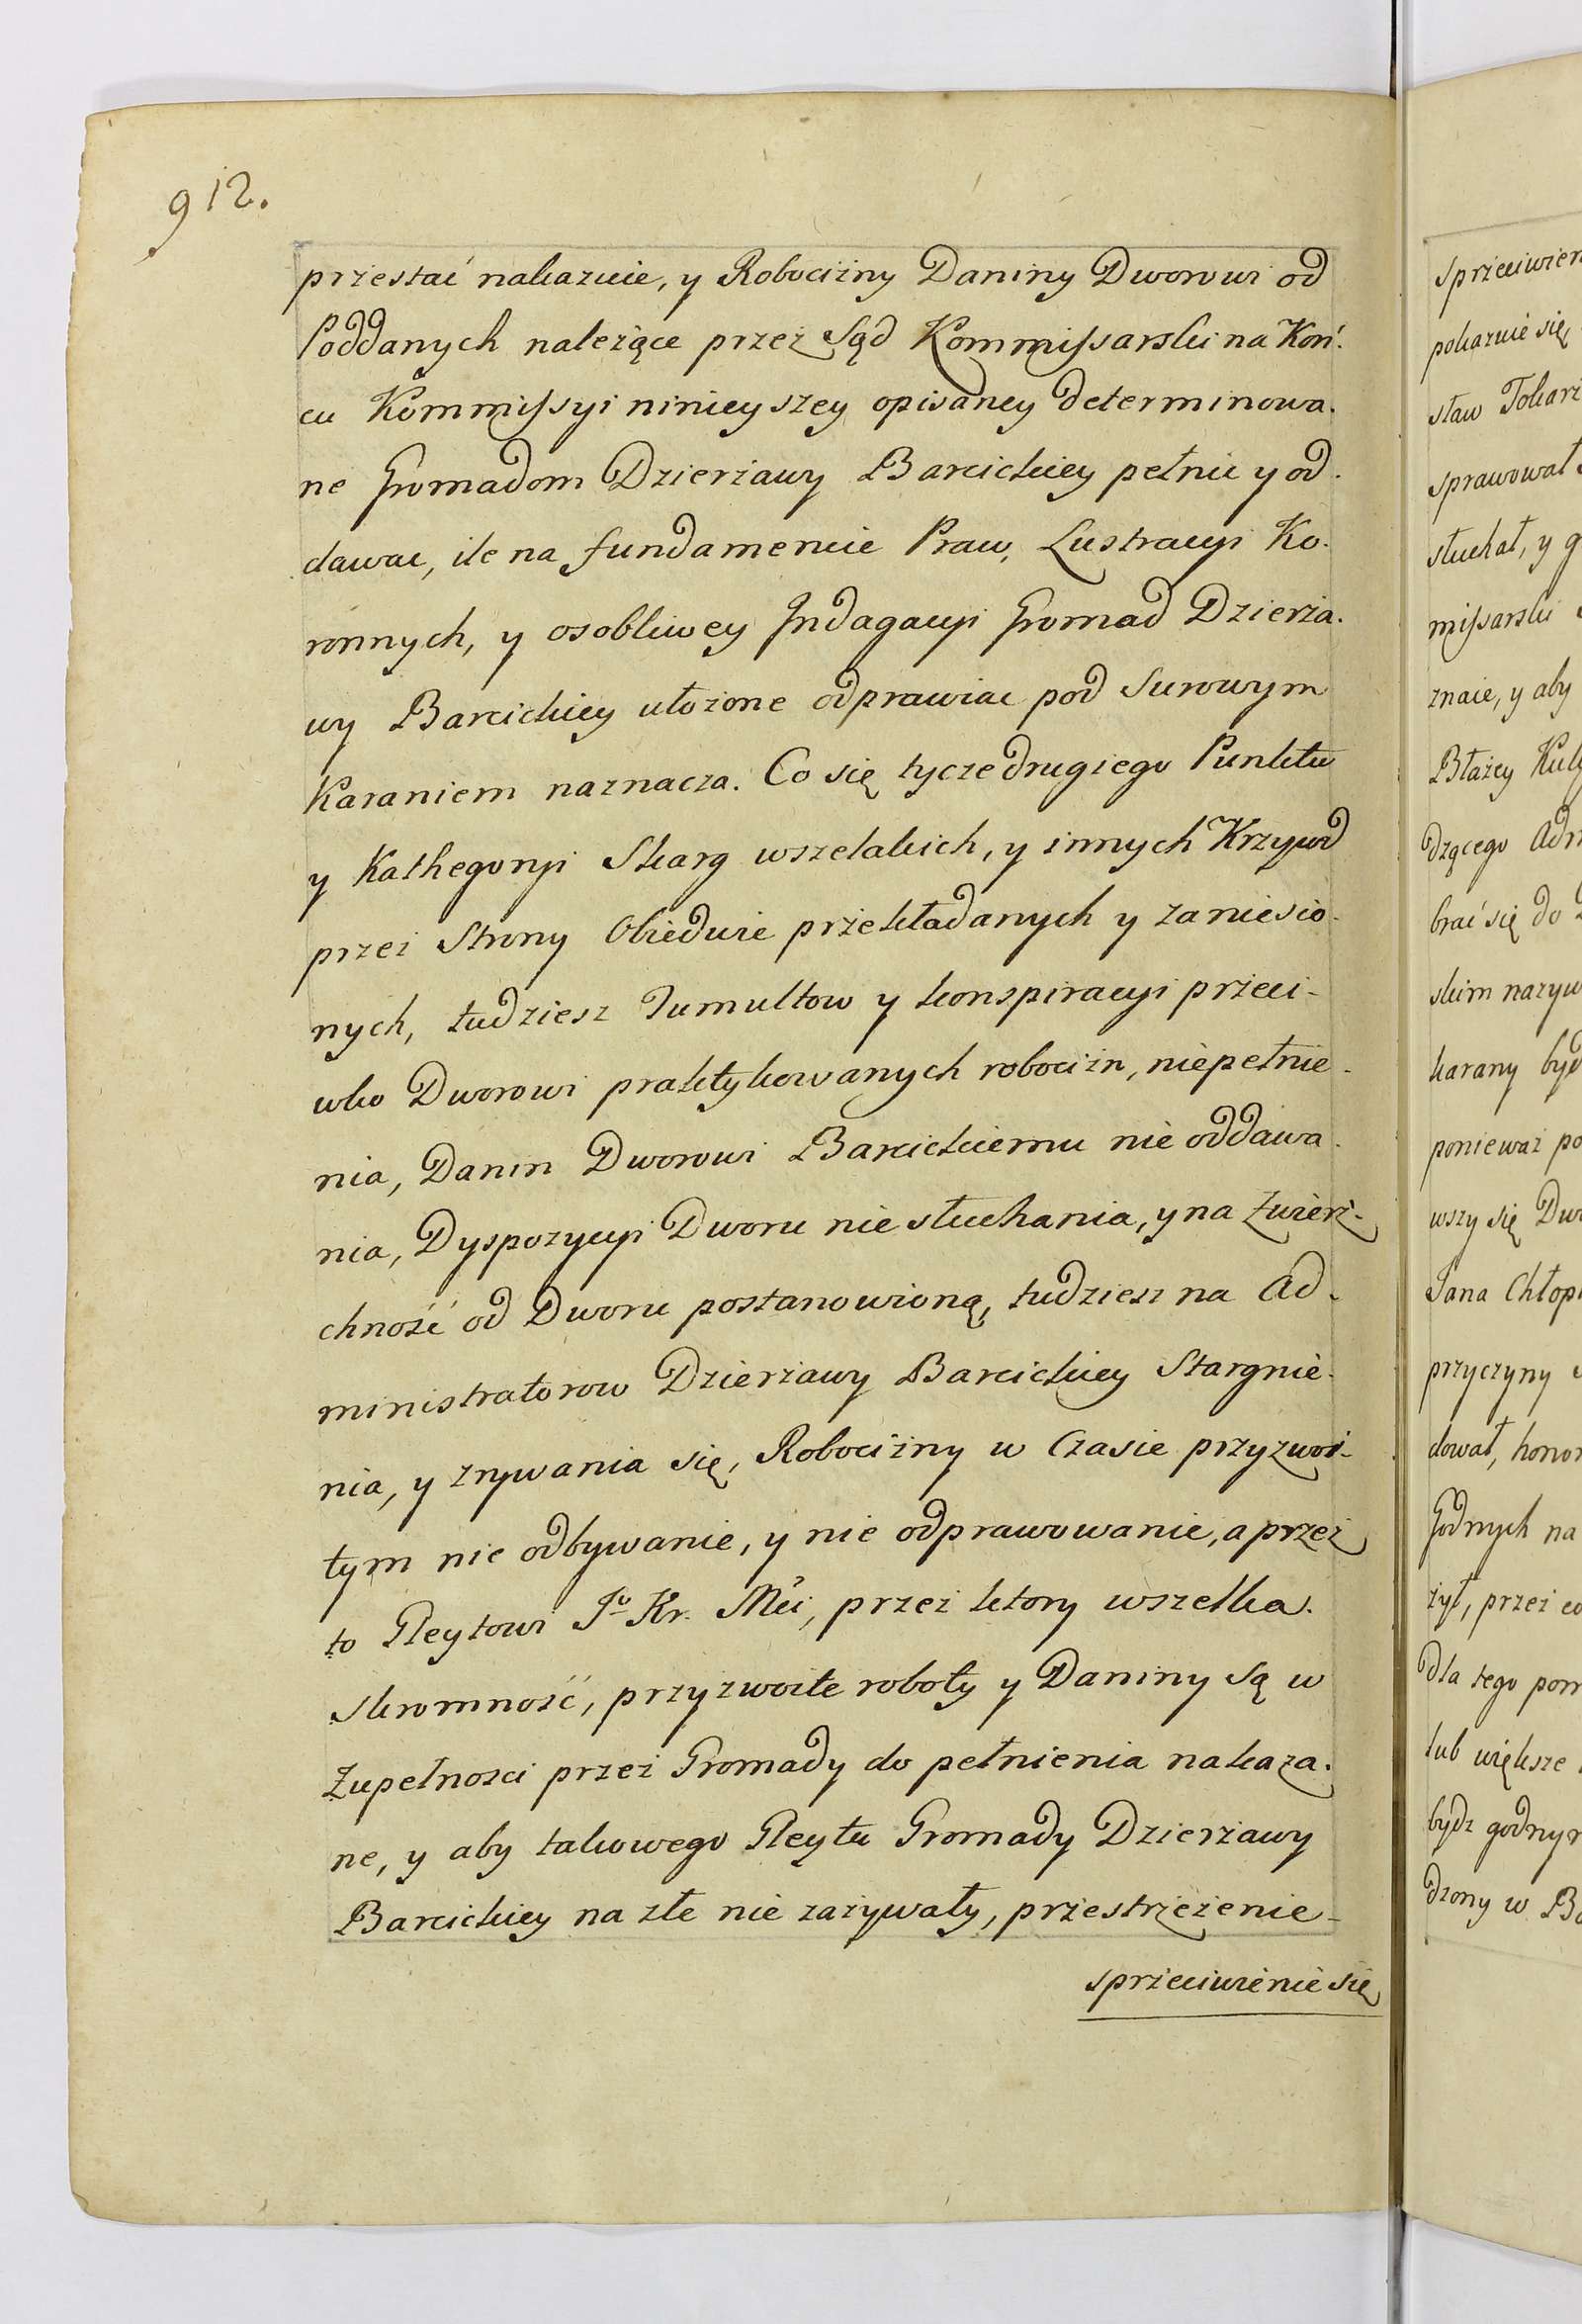 912.
przestać nakazuie, y Robocizny Daniny Dworowi od
Poddanych należące przez Sąd Kommissarski na Koń.
cu Kommissyi ninieyszey opisaney determinowa.
ne Gromadom Dzierżawy Barcickiey pełnic y od.
dawac, ile na fundamencie Praw, Lustracyi Ko.
ronnych, y osobliwey Indagacyi Gromad Dzierża.
wy Barcickiey ułożone odprawiac pod Surowym
Karaniem naznacza. Co się tycze drugiego Punktu
y Kathegoryi Skarg wszelakich, y innych Krzywd
przez Strony Obiedwie przekładanych y zaniesio-
nych, tudziesz Tumultow y konspiracyi przeci-
wko Dworowi praktykowanych robocizn, niepełnie-
nia, Danin Dworowi Barcickiemu nie oddawa.
nia, Dyspozycyi Dworu nie słuchania, y na Zwierz-
chność od Dworu postanowioną, tudziesz na Ad-
ministratorow Dzierżawy Barcickiey Stargnie-
nia, y zrywania się, Robocizny w Czasie przyzwoi-
tym nie odbywanie, y nie odprawowanie, a przez
to Gleytowi Jo Kr. Mci, przez ktory wszelka.
skromność, przyzwoite roboty y Daniny są w
Zupełnosci przez Gromady do pełnienia nakaza.
ne, y aby takowego Gleytu Gromady Dzierżawy
Barcickiey na złe nie zażywały, przestrzeżenie-
sprzeciwienie się
sprzeciwien
pokazuie się
sław Tokarz
sprawował
słuchał, y g
missarski
znaie, y aby
Błażey Kul
dzącego Adm
brać się do
skim nazyw
karany był
ponieważ po
wszy się Dwo
Jana Chłop
przyczyny
dował, honor
Godnych na
żył, przez co
dla tego pom
lub większe
bydz godnym
dzony w Ba